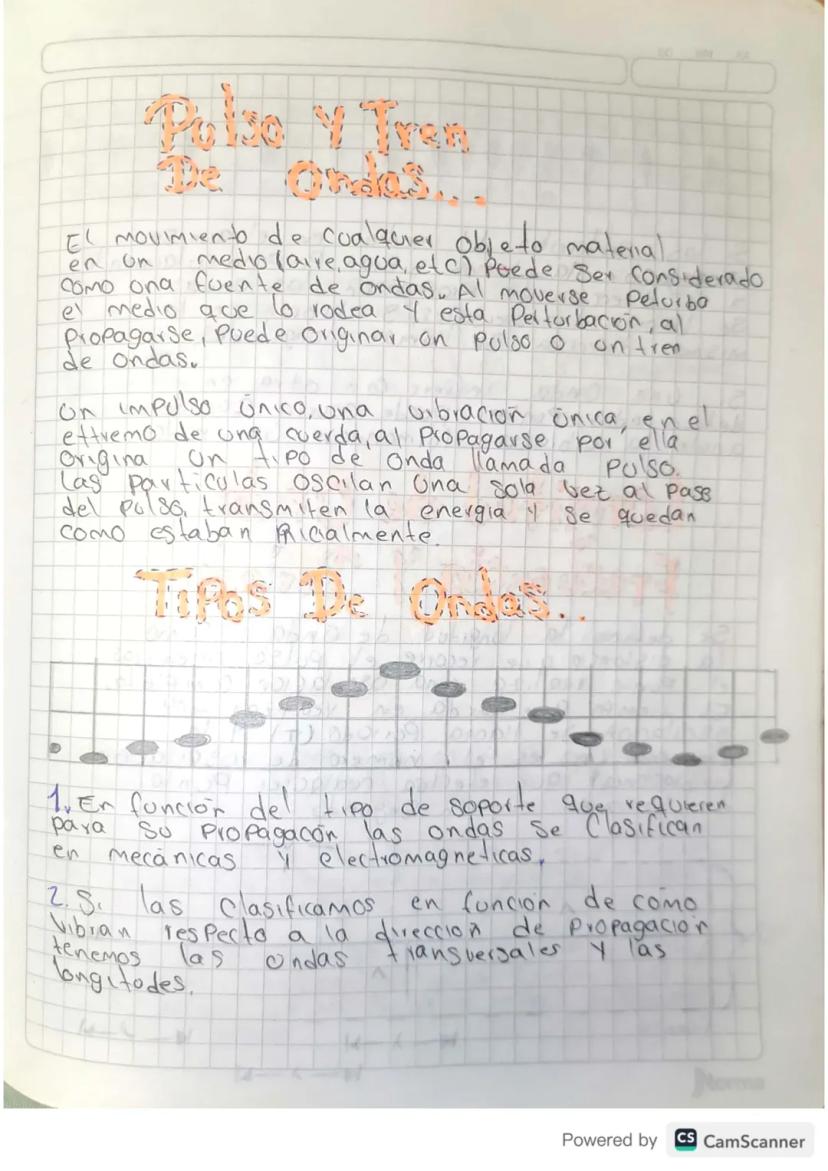 Pulso Y Tren
De Ondas...
El movimiento de cualquier objeto material
en un medio (aire, agua, etc) Puede Ser Considerado
como una fuente de ondas. Al moverse Peturba
el medio que lo rodea y esta Perturbación, al
Propagarse, Puede originar un Pulso o un tren
de ondas.
Un impulso único, una vibración única, en el
extremo de una cuerda, al Propagarse por ella
Origina un tipo de onda llamada Pulso.
Las particulas oscilan una sola vez al paso
del pulso, transmiten la energia y se quedan
como estaban inicialmente.
Tipos De Ondas...
1. En función del tipo de soporte que requieren
para su Propagacón las ondas se Clasifican
en mecánicas y electromagneticas.
2. Si las Clasificamos en función de como
vibran respecto a la dirección de Propagación
tenemos las ondas transversales y las
longitodes.
Norma
Powered by CS CamScanner